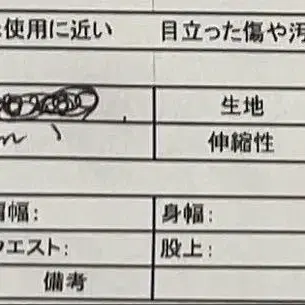 使用に近い 目立った傷や汚
生地
伸縮性
肩幅: 身幅:
ウエスト: 股上:
備考